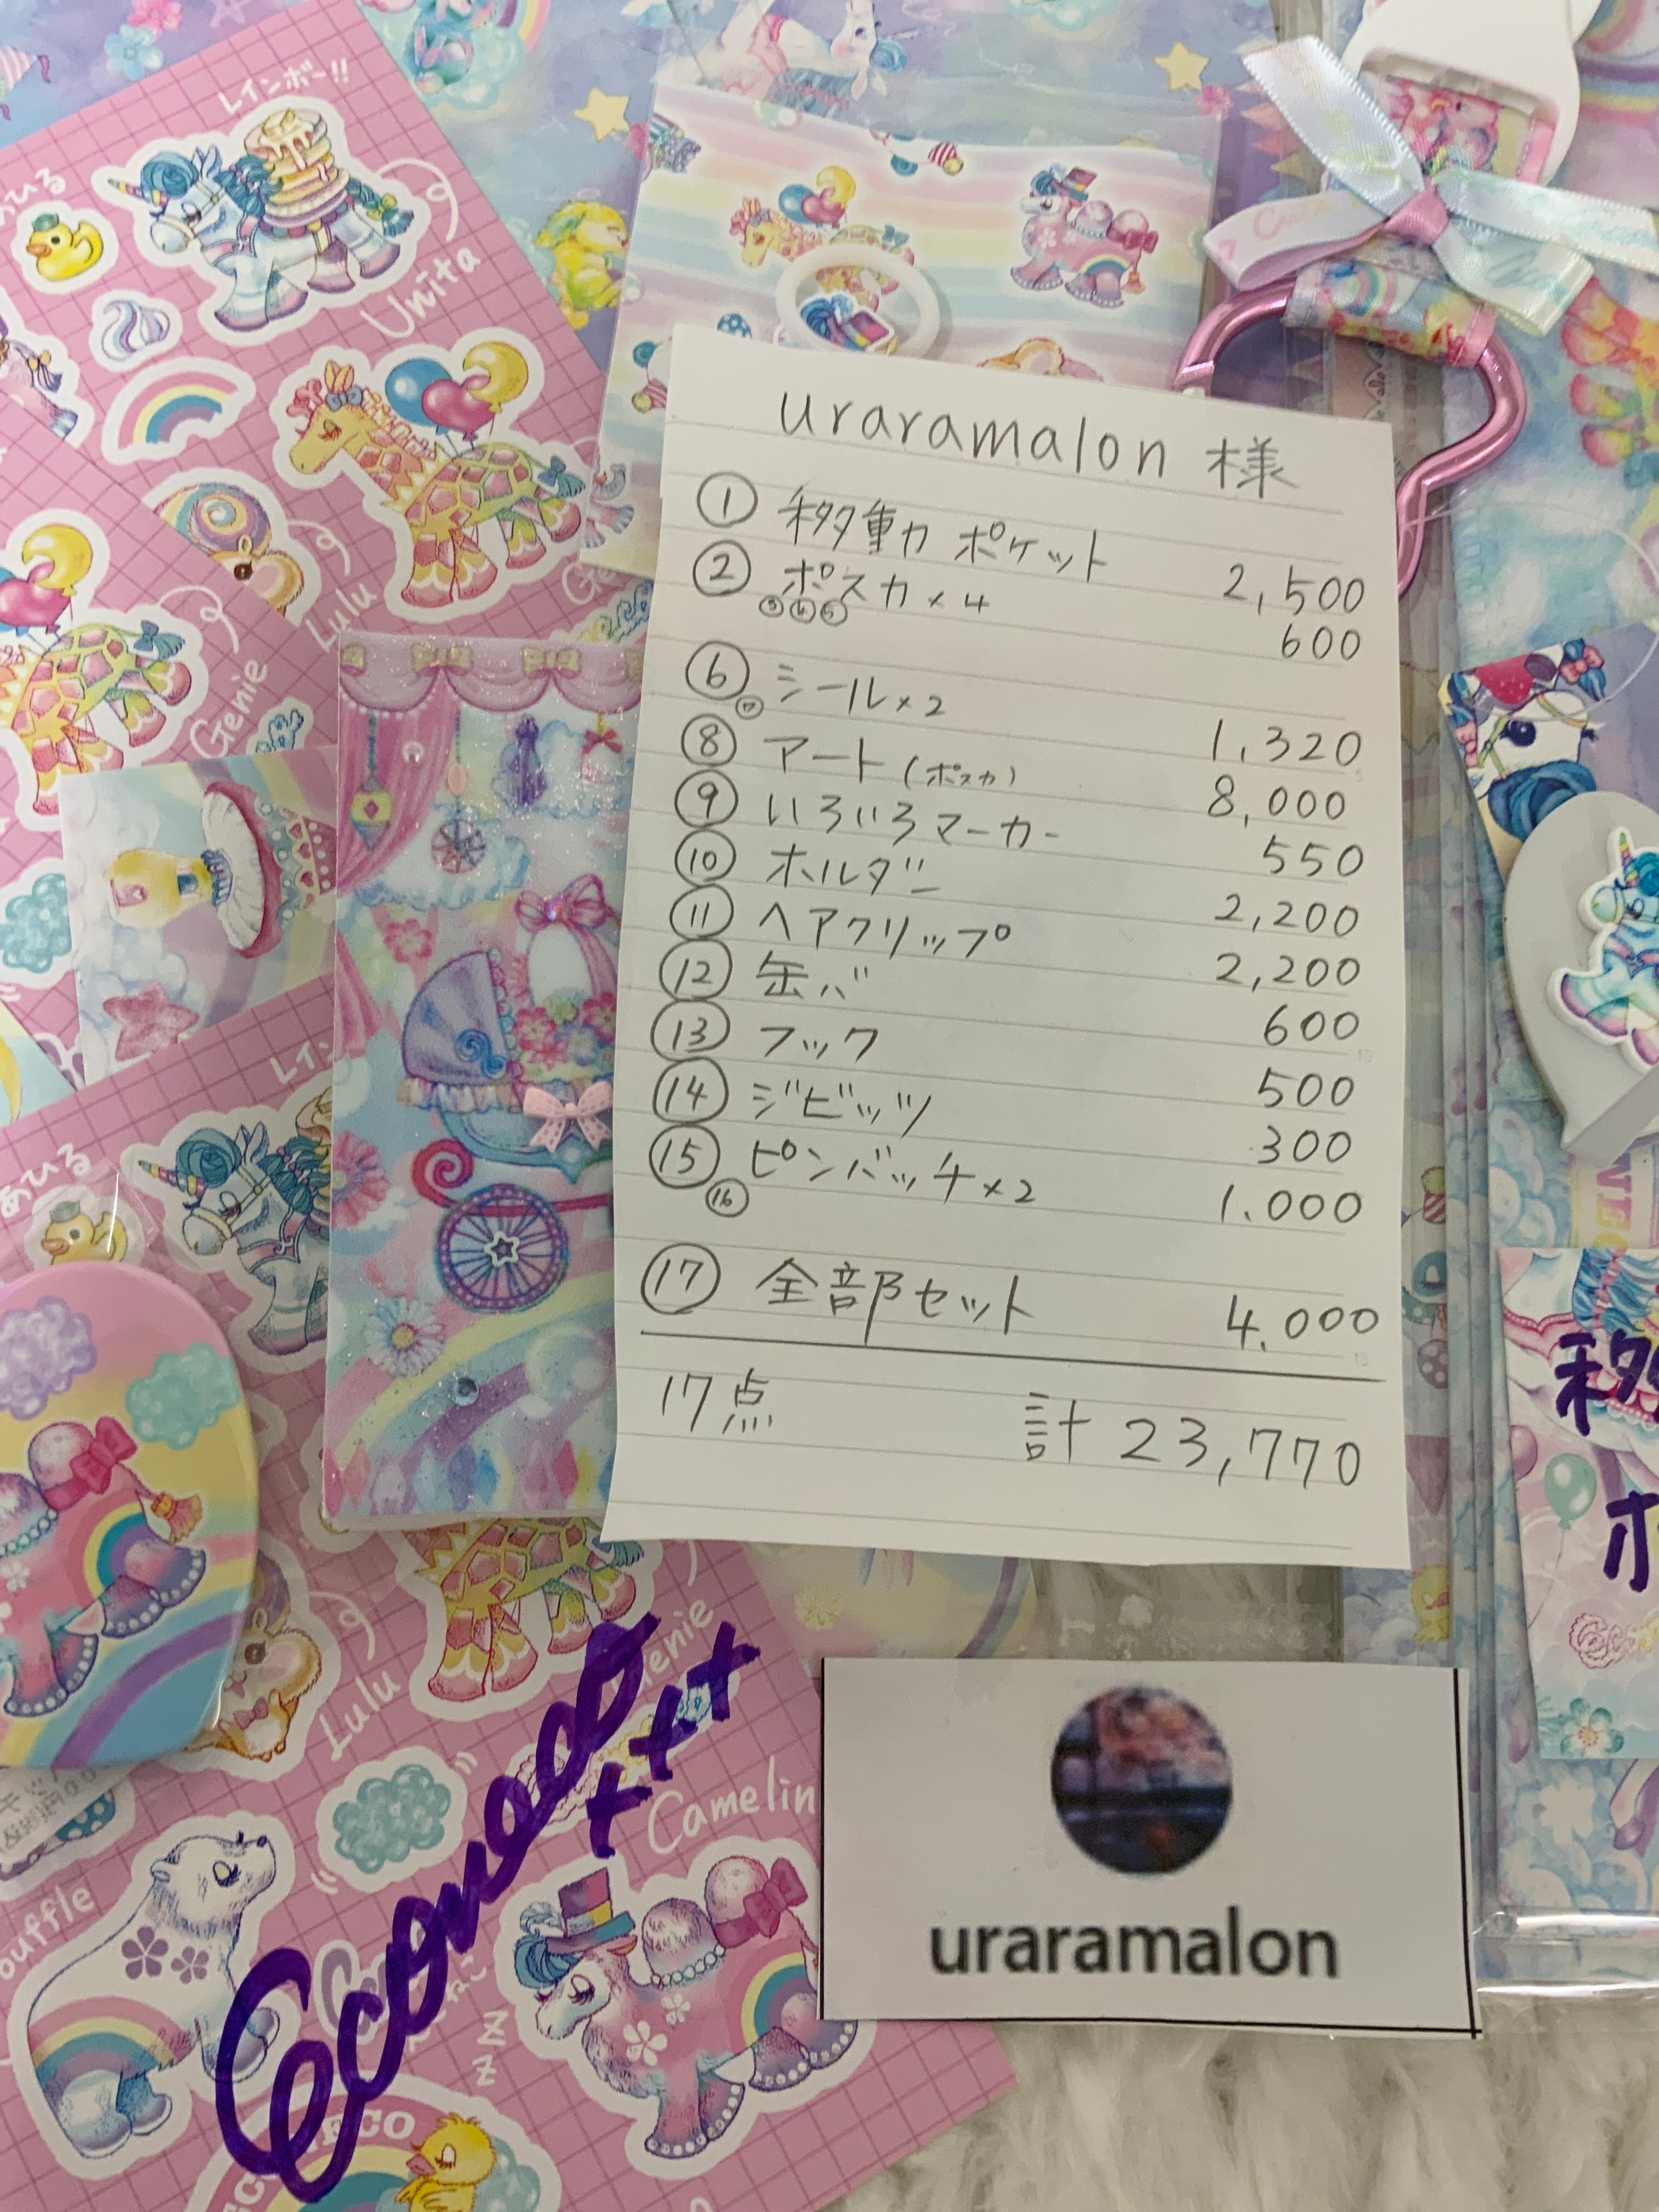 レインボー!!
Unita
Lulu
Genie
uraramalon 様
① 移動ポケット 2,500
② ポスカ×4 600
③④⑤
⑥ シール×2 1,320
⑰
⑧ アート(ポスカ) 8,000
⑨ いろいろマーカー 550
⑩ ホルダー 2,200
⑪ ヘアクリップ 2,200
⑫ 缶バ 600
⑬ フック 500
⑭ ジビッツ 300
⑮ ピンバッチ×2 1.000
⑯
⑰ 全部セット 4.000
17点 計 23,770
Genie
あひる
Lulu
Genie
Camelin
Econeco
××××
uraramalon